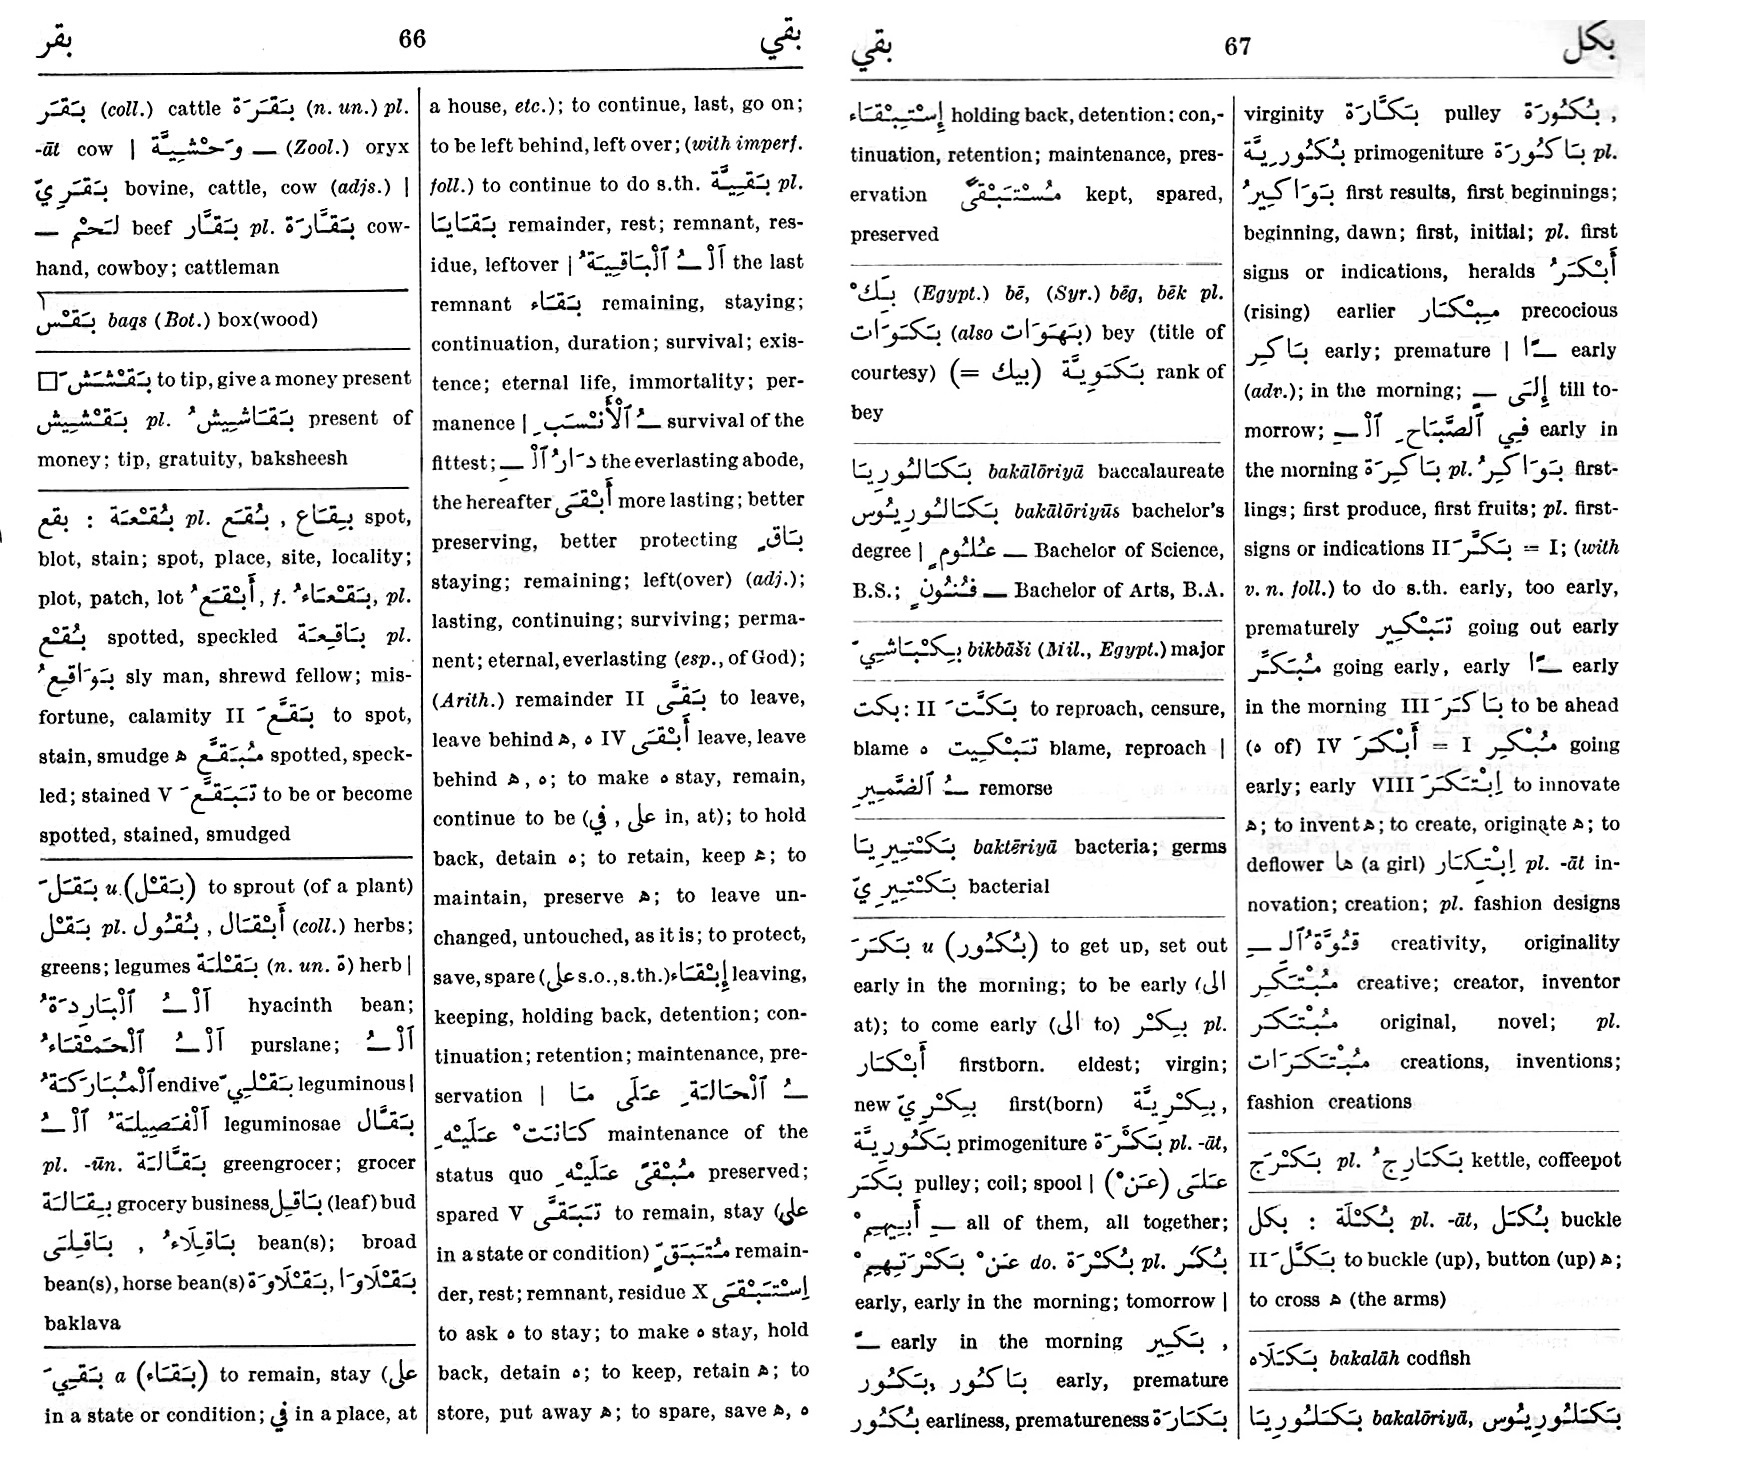 بقر 66 بقي
بَقَر (coll.) cattle بَقَرَة (n. un.) pl.
-āt cow | وَحْشِيَّة — (Zool.) oryx
بَقَرِيّ bovine, cattle, cow (adjs.) |
لَحْم — beef بَقَّار pl. بَقَّارَة cow-
hand, cowboy; cattleman
بَقْس baqs (Bot.) box(wood)
□ بَقْشَشَ to tip, give a money present
بَقْشِيش pl. بَقَاشِيشُ present of
money; tip, gratuity, baksheesh
بقع : بُقْعَة pl. بُقَع , بِقَاع spot,
blot, stain; spot, place, site, locality;
plot, patch, lot أَبْقَعُ, f. بَقْعَاءُ, pl.
بُقْع spotted, speckled بَاقِعَة pl.
بَوَاقِعُ sly man, shrewd fellow; mis-
fortune, calamity II بَقَّعَ to spot,
stain, smudge ه مُبَقَّع spotted, speck-
led; stained V تَبَقَّعَ to be or become
spotted, stained, smudged
بَقَلَ u (بَقْل) to sprout (of a plant)
بَقْل pl. بُقُول , أَبْقَال (coll.) herbs;
greens; legumes بَقْلَة (n. un. ة) herb |
اَلْـ ـُ ٱلْبَارِدَةُ hyacinth bean;
اَلْـ ـُ ٱلْحَمْقَاءُ purslane; اَلْـ ـُ
ٱلْمُبَارَكَةُ endive بَقْلِيّ leguminous |
اَلْـ ـُ ٱلْفَصِيلَةُ leguminosae بَقَّال
pl. -ūn. بَقَّالَة greengrocer; grocer
بِقَالَة grocery business بَاقِل (leaf) bud
بَاقِلَّى , بَاقِلَاءُ bean(s); broad
bean(s), horse bean(s) بَقْلَاوَة ,بَقْلَاوَا
baklava
بَقِيَ a (بَقَاء) to remain, stay (على
in a state or condition; في in a place, at
a house, etc.); to continue, last, go on;
to be left behind, left over; (with imperf.
foll.) to continue to do s.th. بَقِيَّة pl.
بَقَايَا remainder, rest; remnant, res-
idue, leftover | اَلْـ ـُ ٱلْبَاقِيَةُ the last
remnant بَقَاء remaining, staying;
continuation, duration; survival; exis-
tence; eternal life, immortality; per-
manence | ـُ ٱلْأَنْسَبِ survival of the
fittest; دَارُ ٱلْـ ـِ the everlasting abode,
the hereafter أَبْقَى more lasting; better
preserving, better protecting بَاقٍ
staying; remaining; left(over) (adj.);
lasting, continuing; surviving; perma-
nent; eternal, everlasting (esp., of God);
(Arith.) remainder II بَقَّى to leave,
leave behind ه, ه IV أَبْقَى leave, leave
behind ه, ه; to make ه stay, remain,
continue to be (في , على in, at); to hold
back, detain ه; to retain, keep ه; to
maintain, preserve ه; to leave un-
changed, untouched, as it is; to protect,
save, spare (على s.o., s.th.) إِبْقَاء leaving,
keeping, holding back, detention; con-
tinuation; retention; maintenance, pre-
servation | ـُ ٱلْحَالَةِ عَلَى مَا
كَانَتْ عَلَيْهِ maintenance of the
status quo مُبْقًى عَلَيْهِ preserved;
spared V تَبَقَّى to remain, stay (على
in a state or condition) مُتَبَقٍّ remain-
der, rest; remnant, residue X إِسْتَبْقَى
to ask ه to stay; to make ه stay, hold
back, detain ه; to keep, retain ه; to
store, put away ه; to spare, save ه, ه
بقي 67 بكل
إِسْتِبْقَاء holding back, detention; con,-
tinuation, retention; maintenance, pres-
ervation مُسْتَبْقًى kept, spared,
preserved
بَكْ (Egypt.) bē, (Syr.) bēg, bēk pl.
بَكَوَات (also بَهَوَات) bey (title of
courtesy) (= بيك) بَكَوِيَّة rank of
bey
بَكَالُورِيَا bakālōriyā baccalaureate
بَكَالُورِيُوس bakālōriyūs bachelor's
degree | عُلُومٍ — Bachelor of Science,
B.S.; فُنُونٍ — Bachelor of Arts, B.A.
بِكْبَاشِيّ bikbāši (Mil., Egypt.) major
بكت: II بَكَّتَ to reproach, censure,
blame ه تَبْكِيت blame, reproach |
ـُ ٱلضَّمِيرِ remorse
بَكْتِيرِيَا baktēriyā bacteria; germs
بَكْتِيرِيّ bacterial
بَكَرَ u (بُكُور) to get up, set out
early in the morning; to be early (الى
at); to come early (الى to) بِكْر pl.
أَبْكَار firstborn. eldest; virgin;
new بِكْرِيّ first(born) بِكْرِيَّة ,
بَكُورِيَّة primogeniture بَكَرَة pl. -āt,
بَكَر pulley; coil; spool | عَلَى (عَنْ)
أَبِيهِمْ ـِ all of them, all together;
عَنْ بَكْرَتِهِمْ do. بُكْرَة pl. بُكَر
early, early in the morning; tomorrow |
ـً early in the morning بَكِير ,
بَاكُور ,بَكُور early, premature
بُكُور earliness, prematureness بَكَارَة
virginity بَكَّارَة pulley بُكُورَة ,
بُكُورِيَّة primogeniture بَاكُورَة pl.
بَوَاكِيرُ first results, first beginnings;
beginning, dawn; first, initial; pl. first
signs or indications, heralds أَبْكَرُ
(rising) earlier مِبْكَار precocious
بَاكِر early; premature | ـًا early
(adv.); in the morning; إِلَى ـٍ till to-
morrow; فِي ٱلصَّبَاحِ ٱلْـ ـِ early in
the morning بَاكِرَة pl. بَوَاكِرُ first-
lings; first produce, first fruits; pl. first-
signs or indications II بَكَّرَ = I; (with
v. n. foll.) to do s.th. early, too early,
prematurely تَبْكِير going out early
مُبَكِّر going early, early ـًا early
in the morning III بَاكَرَ to be ahead
(ه of) IV أَبْكَرَ = I مُبْكِر going
early; early VIII اِبْتَكَرَ to innovate
ه; to invent ه; to create, originate ه; to
deflower ها (a girl) اِبْتِكَار pl. -āt in-
novation; creation; pl. fashion designs
قُوَّةُ ٱلْـ ـِ creativity, originality
مُبْتَكِر creative; creator, inventor
مُبْتَكَر original, novel; pl.
مُبْتَكَرَات creations, inventions;
fashion creations
بَكْرَج pl. بَكَارِجُ kettle, coffeepot
بكل : بُكْلَة pl. -āt, بُكَل buckle
II بَكَّلَ to buckle (up), button (up) ه;
to cross ه (the arms)
بَكَلَاه bakalāh codfish
بَكَلُورِيَا bakalōriyā, بَكَلُورِيُوس